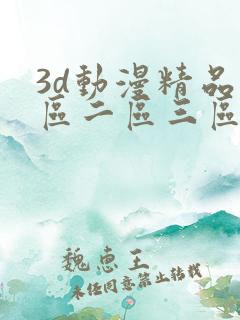 3d動漫精品
區二區三區
魏惠王
未经同意禁止转载